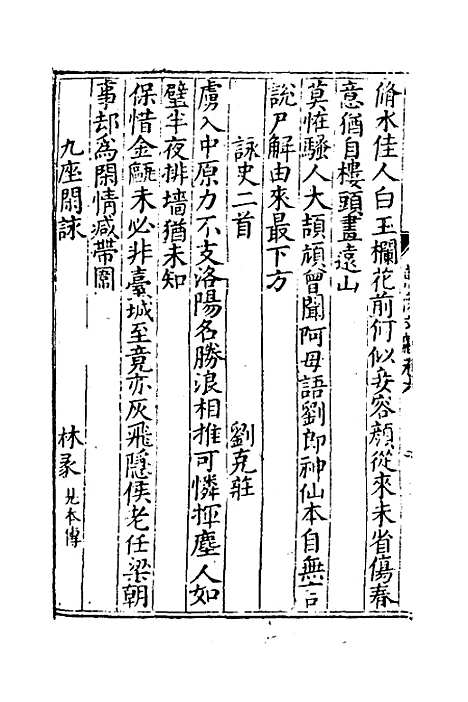 脩水佳人白玉欄花前何似妾容顔從來未省傷春
意猶自樓頭畫遠山
莫怪騷人大頡頏曾聞阿母語劉郎神仙本自無言
說尸解由來最下方
詠史二首 劉克莊
虜入中原力不支洛陽名勝浪相推可憐揮麈人如
璧半夜排墻猶未知
保惜金甌未必非臺城至竟亦灰飛隱侯老任梁朝
事却爲閑情減帶圍
九座閑詠 林彖 見本傳